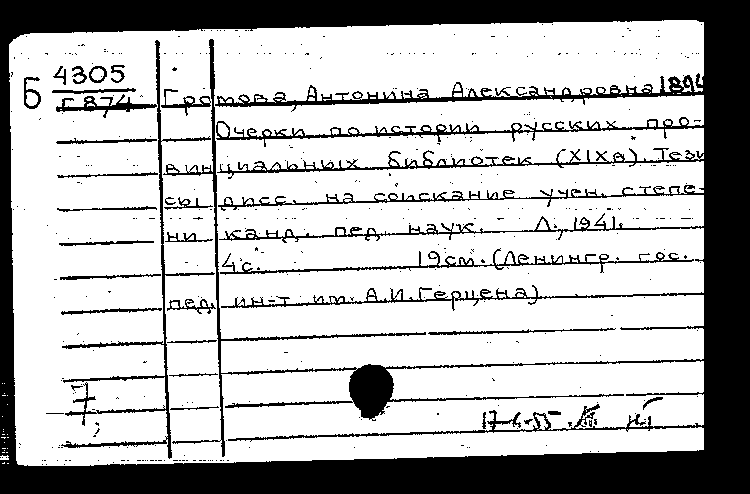 Б 4305
Г874
Громова, Антонина Александровна 1894
Очерки по истории русских про-
винциальных библиотек (XIXв). Тези
сы дисс. на соискание учен. степе-
ни канд. пед. наук. Л., 1941.
4с. 19см. (Ленингр. гос.
пед. ин-т им. А.И.Герцена)
7,